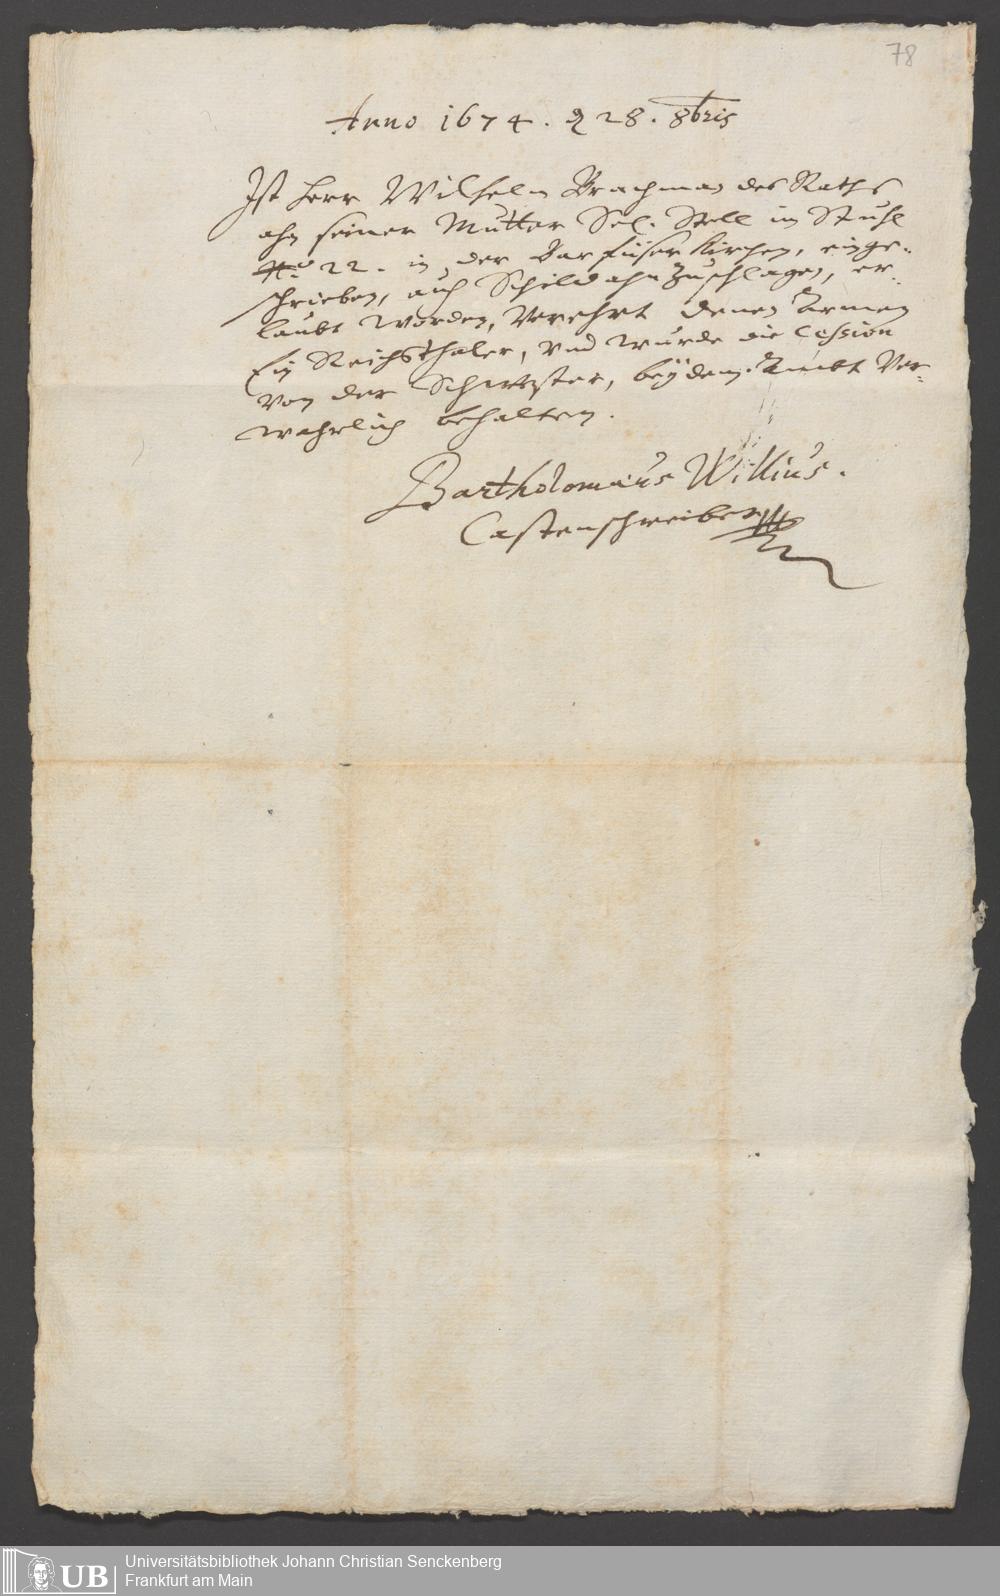 78
Anno 1674. d 28. 8bris
Ist Herr Wilhelm Brachman des Raths
ahn seiner Mutter Sel. Stell im Stuhl
No 22. in der Barfüser Kirchen, einge-
schrieben, auch Schild ahn Zuschlagen, er-
laubt worden, Verehrt denen Armen
Ein Reichsthaler, und wurde die Cession
von der Schwester, beÿ dem Ambt Ver-
wahrlich behalten.
Bartholomäus Willius.
Castenschreiber
Universitätsbibliothek Johann Christian Senckenberg
Frankfurt am Main
UB